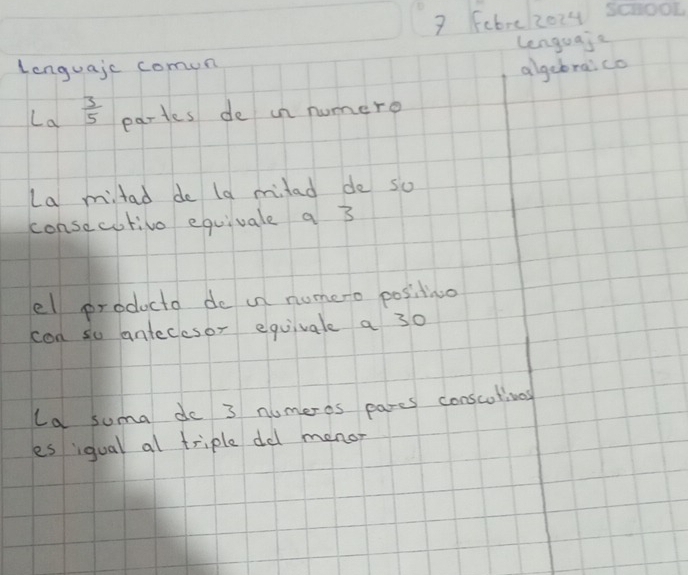 SCHOOL
7 Febre 2024
Lenguaje comun
Lenguaje
algebraico
La 3/5 partes de un numero
La mitad de la mitad de su
consecutivo equivale a 3
el producto de un numero positivo
con su antecesor equivale a 30
La suma de 3 numeros pares conscutivos
es igual al triple del menor